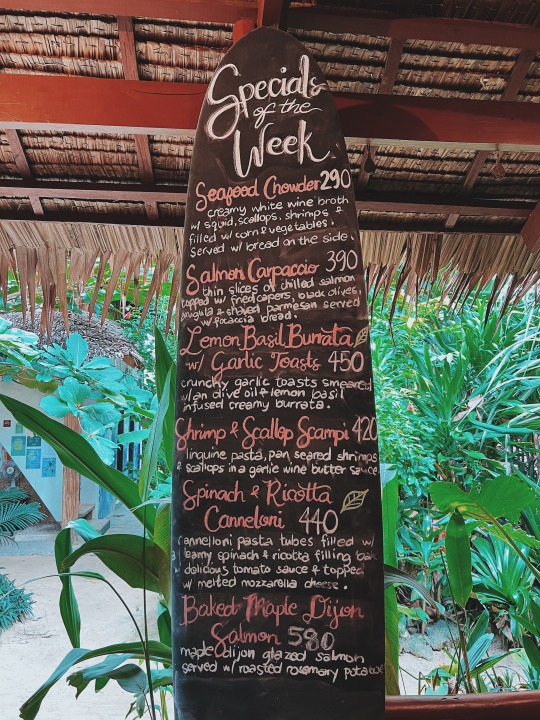 Specials
of the
Week
Seafood Chowder 290
creamy white wine broth
w/ squid, scallops, shrimps &
filled w/ corn & vegetables.
served w/ bread on the side.
Salmon Carpaccio 390
thin slices of chilled salmon
topped w/ fried capers, black olives,
arugula & shaved parmesan served
w/ focaccia bread.
Lemon Basil Burrata
w/ Garlic Toasts 450
crunchy garlic toasts smeared
w/ an olive oil & lemon basil
infused creamy burrata.
Shrimp & Scallop Scampi 420
linguine pasta, pan seared shrimps
& scallops in a garlic wine butter sauce
Spinach & Ricotta
Cannelloni 440
cannelloni pasta tubes filled w/
creamy spinach & ricotta filling
delicious tomato sauce & topped
w/ melted mozzarella cheese.
Baked Maple Dijon
Salmon 580
maple dijon glazed salmon
served w/ roasted rosemary potatoe